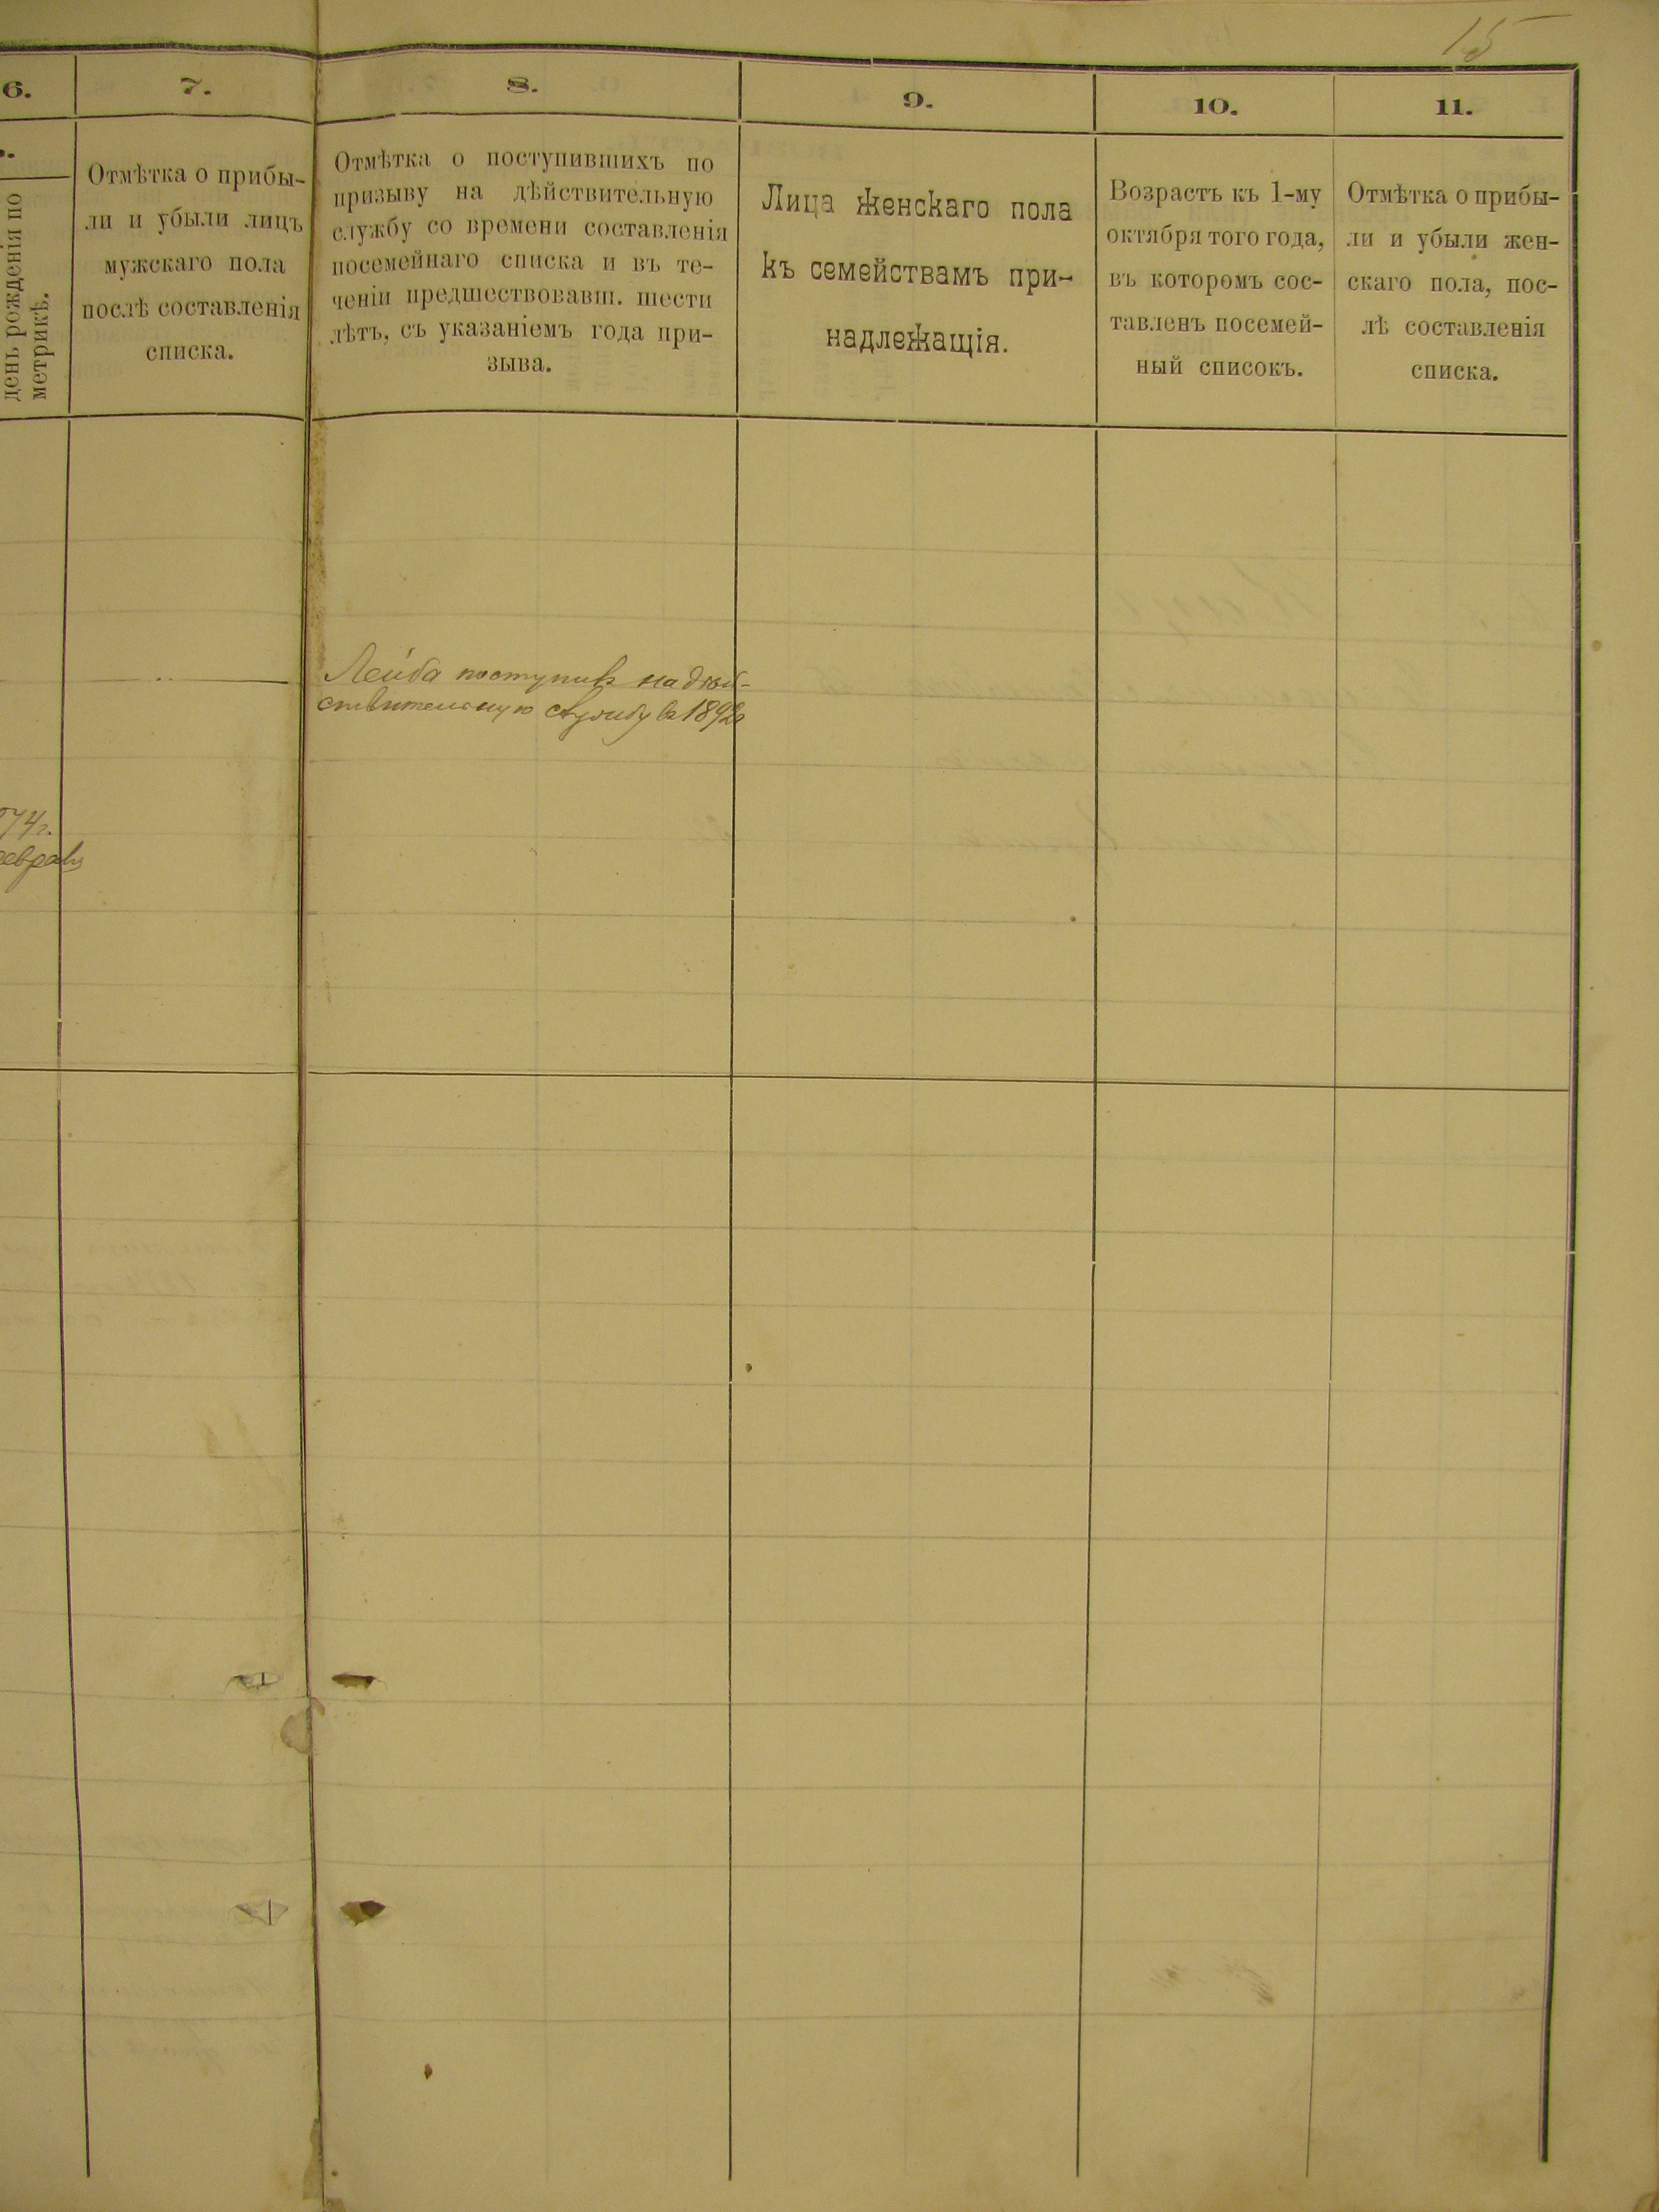 15
6.
7.
8.
9.
10.
11.
день рожденія по
метрикѣ.
Отмѣтка о прибы-
ли и убыли лицъ
мужскаго пола
послѣ составленія
списка.
Отмѣтка о поступившихъ по
призыву на дѣйствительную
службу со времени составленія
посемейнаго списка и въ те-
ченіи предшествовавш. шести
лѣтъ, съ указаніемъ года при-
зыва.
Лица женскаго пола
къ семействамъ при-
надлежащія.
Возрастъ къ 1-му
октября того года,
въ которомъ сос-
тавленъ посемей-
ный списокъ.
Отмѣтка о прибы-
ли и убыли жен-
скаго пола, пос-
лѣ составленія
списка.
Лейба поступилъ на дѣй-
ствительную службу въ 1892г
74г.